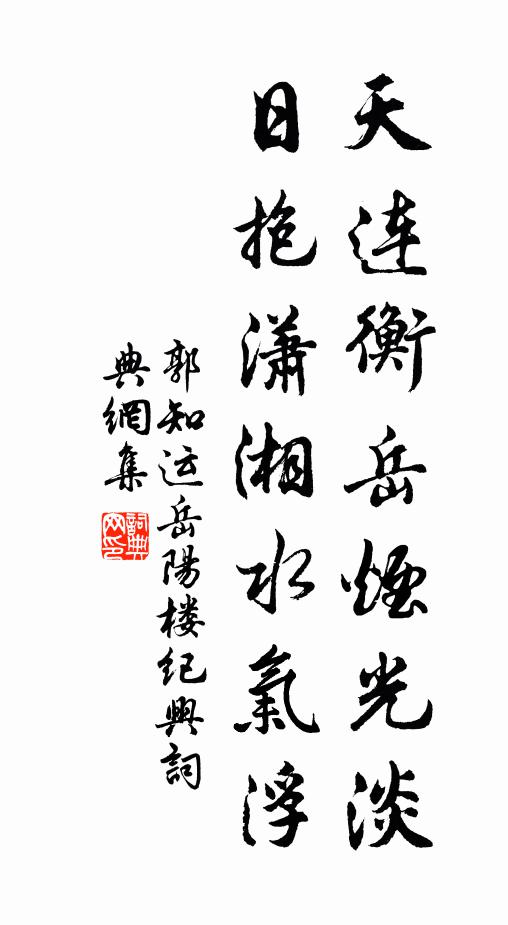 天連衡岳煙光淡
日抱瀟湘水氣浮
郭知运岳陽楼纪興詞
典網集
詞典
网印